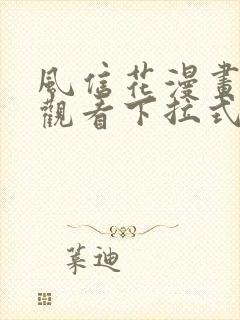 風信花漫畫
觀看下拉式
葉迪